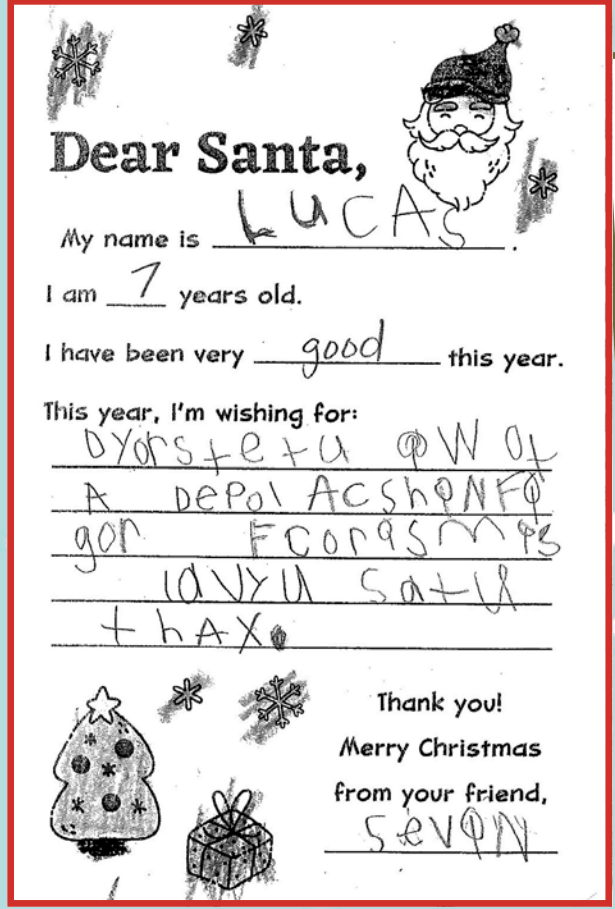 Dear Santa,
My name is LUCAS.
I am 7 years old.
I have been very good this year.
This year, I'm wishing for:
DYorstetu QW Ot
A DePol AcshQNFQ
gor Fcorqsmqs
lavyu Satu
thAX.
Thank you!
Merry Christmas
from your friend,
SevQN